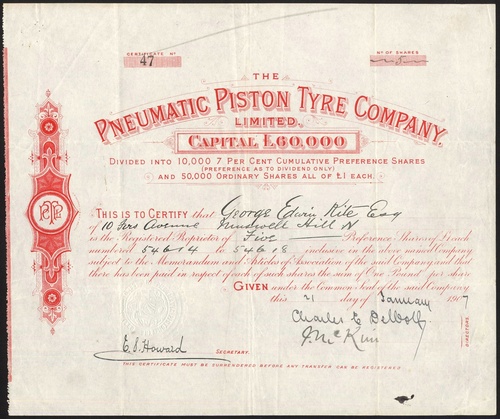 CERTIFICATE No
47
No OF SHARES
5
THE
PNEUMATIC PISTON TYRE COMPANY,
LIMITED.
CAPITAL £60,000
DIVIDED INTO 10,000 7 PER CENT CUMULATIVE PREFERENCE SHARES
(PREFERENCE AS TO DIVIDEND ONLY)
AND 50,000 ORDINARY SHARES ALL OF £1 EACH.
THIS IS TO CERTIFY that George Edwin Kite Esq
of 10 Avenue Muswell Hill N
is the Registered Proprietor of Five Preference Shares of £1 each
Numbered 54614 to 54618 inclusive in the above named Company
subject to the Memorandum and Articles of Association of the said Company and that
there has been paid in respect of each of such shares the sum of One Pound per share
GIVEN under the Common Seal of the said Company
this 21 day of January 1907
Charles E
J. McKim
DIRECTORS.
E. S. Howard SECRETARY.
THIS CERTIFICATE MUST BE SURRENDERED BEFORE ANY TRANSFER CAN BE REGISTERED